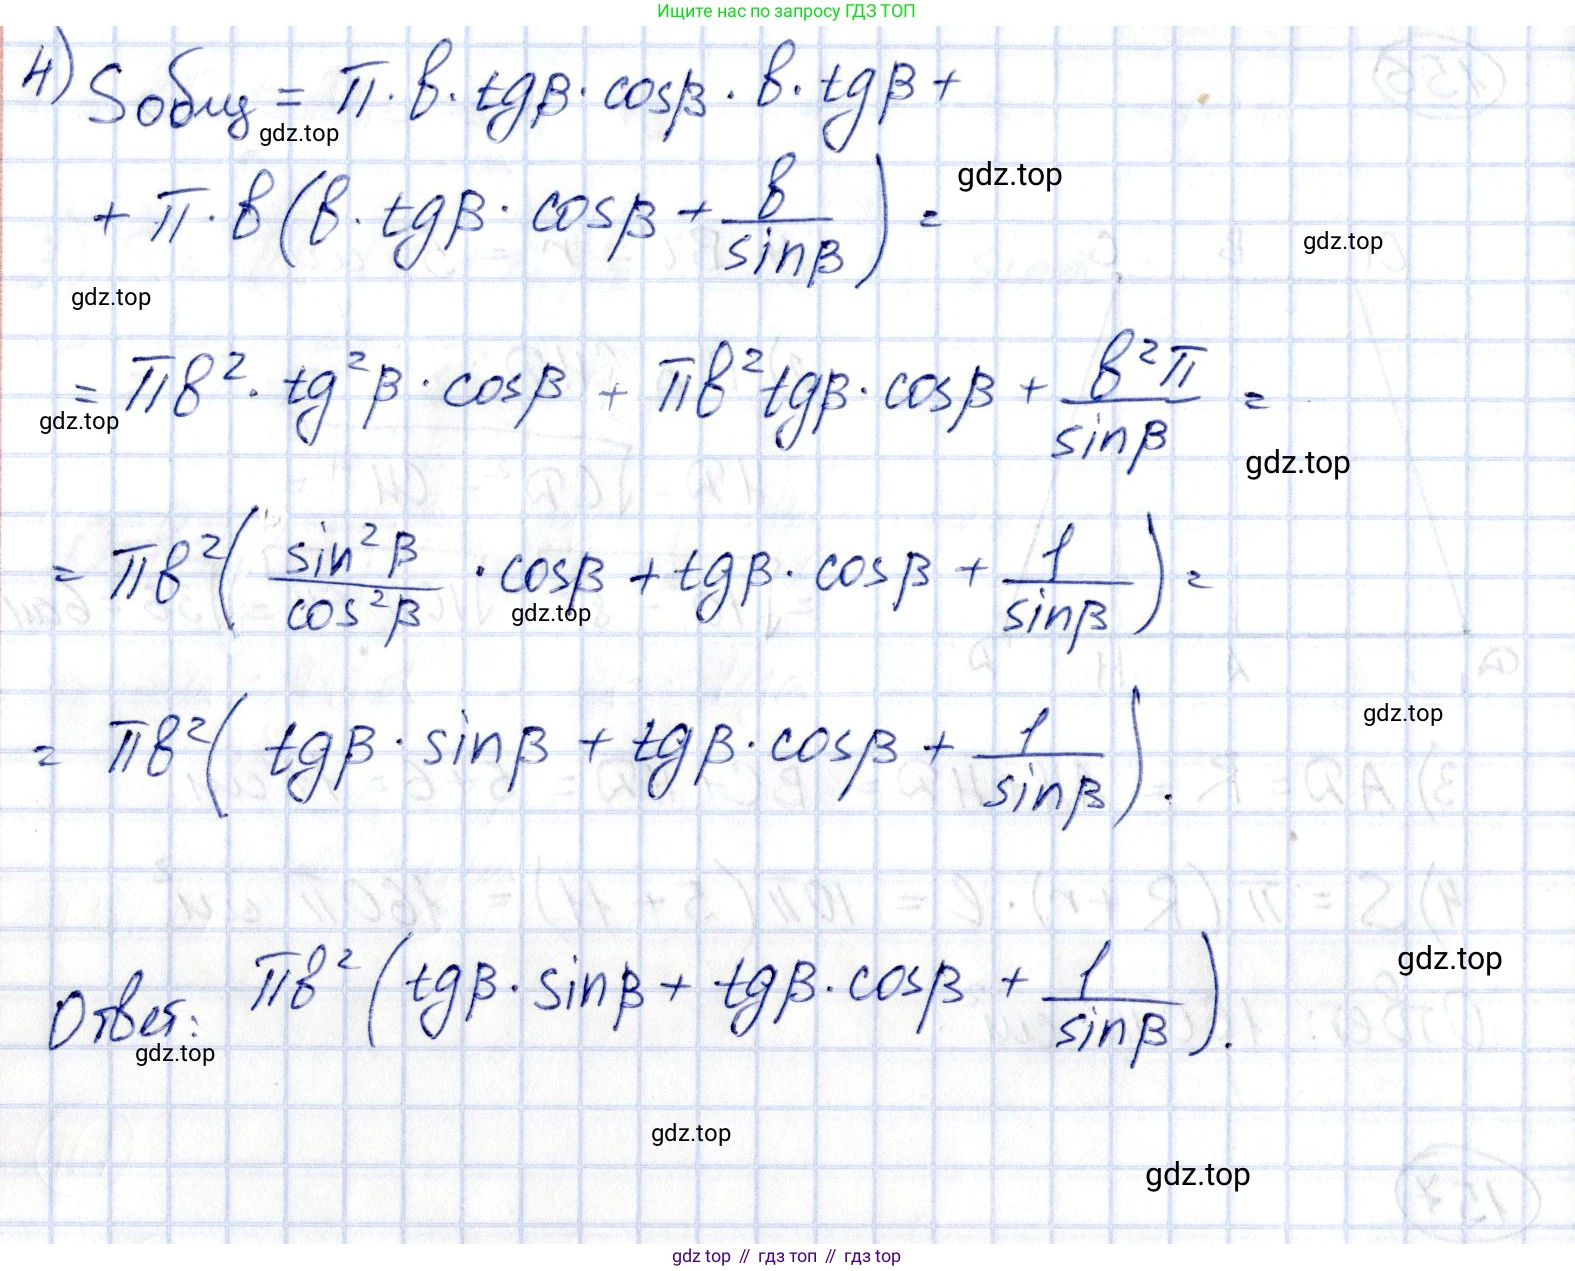 Ищите нас по запросу ГДЗ ТОП
4) Sобщ = π · b · tgβ · cosβ · b · tgβ +
gdz.top
+ π · b (b · tgβ · cosβ + b/sinβ) =
gdz.top
gdz.top
gdz.top
= πb² · tg²β · cosβ + πb² tgβ · cosβ + b²π/sinβ =
gdz.top
gdz.top
= πb² (sin²β/cos²β · cosβ + tgβ · cosβ + 1/sinβ) =
gdz.top
gdz.top
= πb² (tgβ · sinβ + tgβ · cosβ + 1/sinβ).
gdz.top
Ответ: πb² (tgβ · sinβ + tgβ · cosβ + 1/sinβ).
gdz.top
gdz.top
gdz.top
gdz top // гдз топ // гдз top